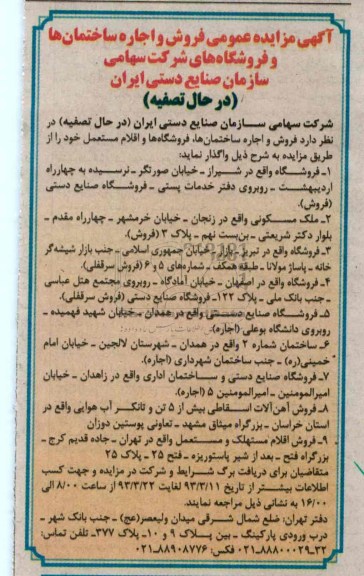 آگهی مزایده عمومی فروش و اجاره ساختمان‌ها
و فروشگاه‌های شرکت سهامی
سازمان صنایع دستی ایران
(در حال تصفیه)
شرکت سهامی سازمان صنایع دستی ایران (در حال تصفیه) در
نظر دارد فروش و اجاره ساختمان‌ها، فروشگاه‌ها و اقلام مستعمل خود را از
طریق مزایده به شرح ذیل واگذار نماید:
۱ـ فروشگاه واقع در شیراز ـ خیابان صورتگر ـ نرسیده به چهارراه
اردیبهشت ـ روبروی دفتر خدمات پستی ـ فروشگاه صنایع دستی
(فروش).
۲ـ ملک مسکونی واقع در زنجان ـ خیابان خرمشهر ـ چهارراه مقدم ـ
بلوار دکتر شریعتی ـ بن‌بست نهم ـ پلاک ۳ (فروش).
۳ـ فروشگاه واقع در تبریز ـ بازار ـ خیابان جمهوری اسلامی ـ جنب بازار شیشه‌گر
خانه ـ پاساژ مولانا ـ طبقه همکف ـ شماره‌های ۵ و ۶ (فروش سرقفلی).
۴ـ فروشگاه واقع در اصفهان ـ خیابان آمادگاه ـ روبروی مجتمع هتل عباسی
ـ جنب بانک ملی ـ پلاک ۱۲۲ـ فروشگاه صنایع دستی (فروش سرقفلی).
۵ـ فروشگاه صنایع دستی واقع در همدان ـ خیابان شهید فهمیده ـ
روبروی دانشگاه بوعلی (اجاره).
۶ـ ساختمان شماره ۲ واقع در همدان ـ شهرستان لالجین ـ خیابان امام
خمینی(ره) ـ جنب ساختمان شهرداری (اجاره).
۷ـ فروشگاه صنایع دستی و ساختمان اداری واقع در زاهدان ـ خیابان
امیرالمومنین ـ امیرالمومنین ۵ (اجاره).
۸ـ فروش آهن‌آلات اسقاطی بیش از ۵ تن و تانکر آب هوایی واقع در
استان خراسان ـ بزرگراه میثاق مشهد ـ تعاونی پوستین دوزان
۹ـ فروش اقلام مستهلک و مستعمل واقع در تهران ـ جاده قدیم کرج ـ
بزرگراه فتح ـ بعد از شیر پاستوریزه ـ فتح ۲۵ ـ پلاک ۲۵
متقاضیان برای دریافت برگ شرایط و شرکت در مزایده و جهت کسب
اطلاعات بیشتر از تاریخ ۹۳/۳/۱۱ لغایت ۹۳/۳/۲۲ از ساعت ۸/۰۰ الی
۱۶/۰۰ به نشانی ذیل مراجعه نمایند.
دفتر تهران: ضلع شمال شرقی میدان ولیعصر(عج) ـ جنب بانک شهر ـ
درب ورودی پارکینگ ـ بین پلاک ۹ و ۱۰ ـ پلاک ۳۷۷ـ تلفن تماس:
۳۲ـ۸۸۸۰۰۰۲۹ـ۰۲۱ فکس: ۸۸۹۰۸۷۷۶ـ۰۲۱